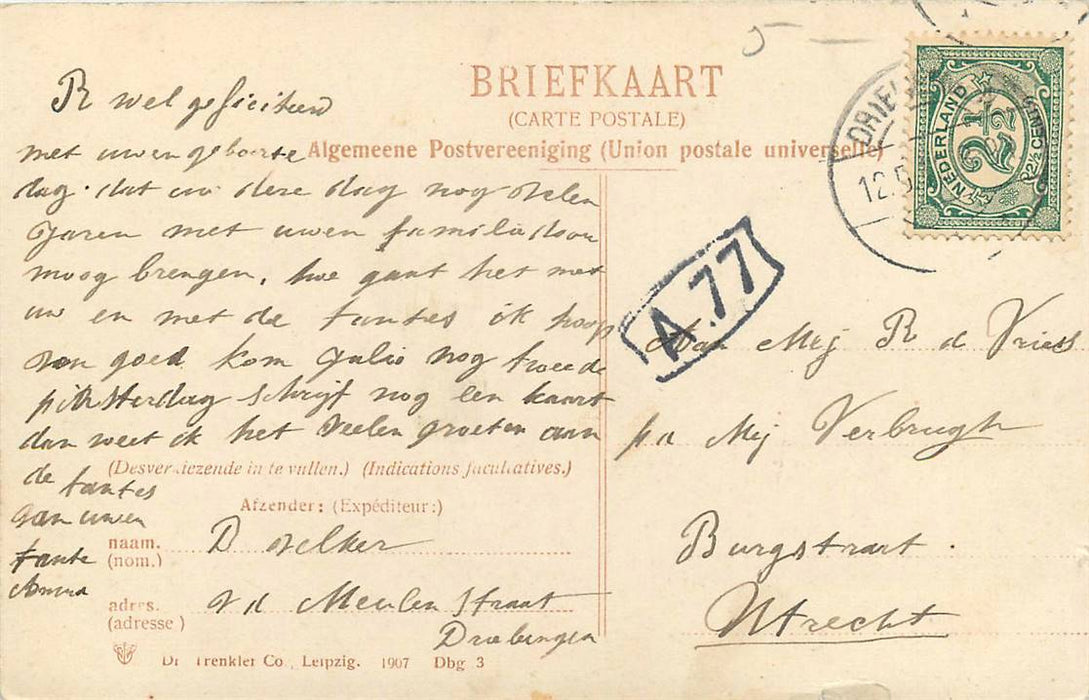 BRIEFKAART
(CARTE POSTALE)
Algemeene Postvereeniging (Union postale universelle)
R wel gefeliciteerd
met uwen geboorte
dag. dat uw deze dag nog velen
Jaren met uwen familie door
moog brengen, hoe gaat het met
uw en met de tantes ik hoop
goed kom Julie nog tweede
pinksterdag schrijf nog een kaart
dan weet ik het Veelen groeten aan
de tantes
van uwen
tante
(Desverkiezende in te vullen.) (Indications facultatives.)
Afzender: (Expéditeur:)
naam. D Velker
(nom.)
adres. v d Meulen Straat
(adresse)
Driebergen
Dr Trenkler Co., Leipzig. 1907 Dbg 3
5
NEDERLAND
2½
2½ CENT
DRIE
12.5
A.77
Aan Mej R d Vries
p/a Mej Verbrugh
Burgstraat.
Utrecht